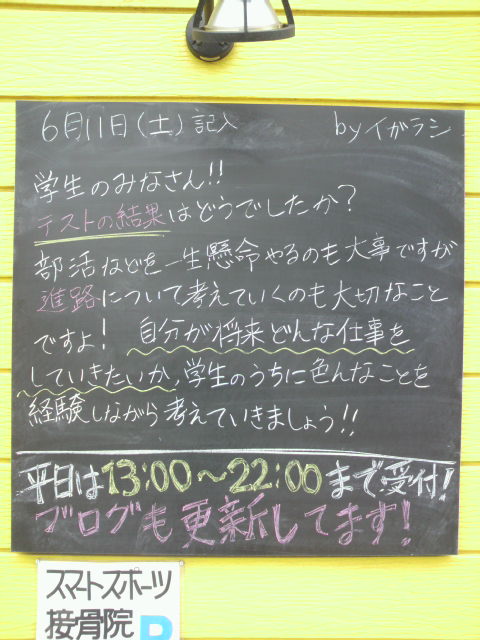 6月11日(土)記入 byイガラシ
学生のみなさん!!
テストの結果はどうでしたか?
部活などを一生懸命やるのも大事ですが
進路について考えていくのも大切なこと
ですよ! 自分が将来どんな仕事を
していきたいか、学生のうちに色んなことを
経験しながら考えていきましょう!!
平日は13:00〜22:00まで受付!
ブログも更新してます!
スマートスポーツ
接骨院 P